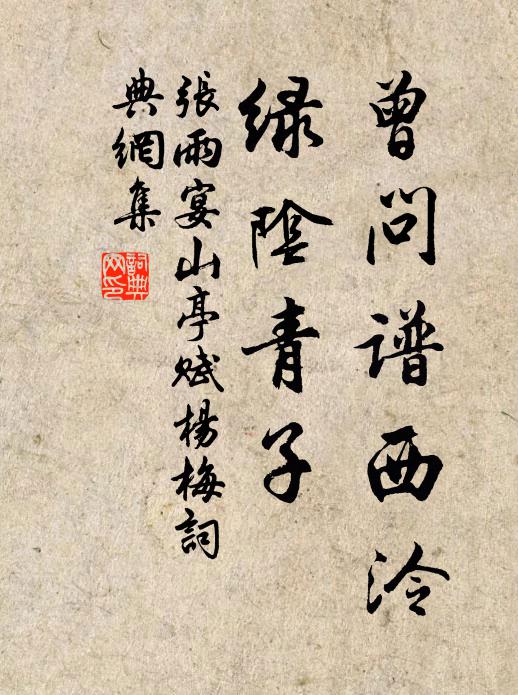 曾问谱西泠
绿阴青子
張雨宴山亭賦楊梅詞
典網集
詞典网印